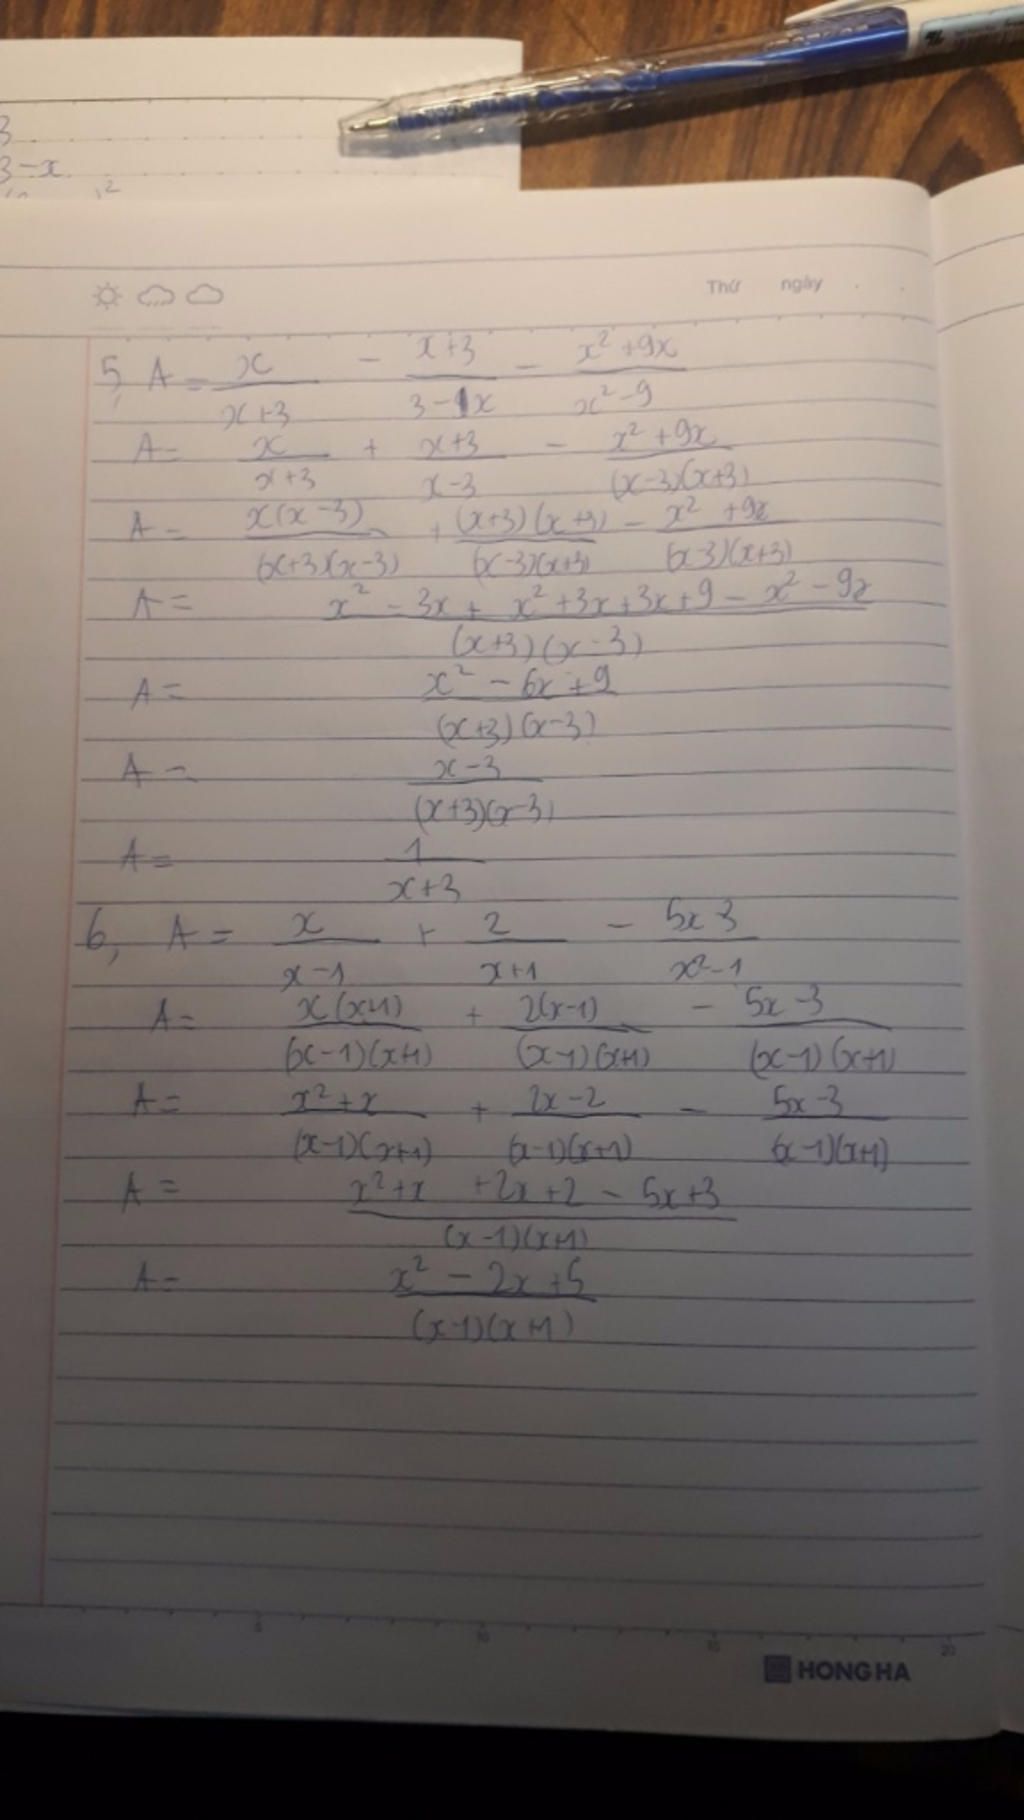 3
3-x
Thứ ngày
5, A = x/(x+3) - (x+3)/(3-x) - (x²+9x)/(x²-9)
A = x/(x+3) + (x+3)/(x-3) - (x²+9x)/((x-3)(x+3))
A = x(x-3)/((x+3)(x-3)) + (x+3)(x+3)/((x-3)(x+3)) - (x²+9x)/((x-3)(x+3))
A = (x²-3x+x²+3x+3x+9-x²-9x)/((x+3)(x-3))
A = (x²-6x+9)/((x+3)(x-3))
A = (x-3)/((x+3)(x-3))
A = 1/(x+3)
6, A = x/(x-1) + 2/(x+1) - (5x-3)/(x²-1)
A = x(x+1)/((x-1)(x+1)) + 2(x-1)/((x-1)(x+1)) - (5x-3)/((x-1)(x+1))
A = (x²+x)/((x-1)(x+1)) + (2x-2)/((x-1)(x+1)) - (5x-3)/((x-1)(x+1))
A = (x²+x+2x+2-5x+3)/((x-1)(x+1))
A = (x²-2x+5)/((x-1)(x+1))
5 10 15 20
HONG HA